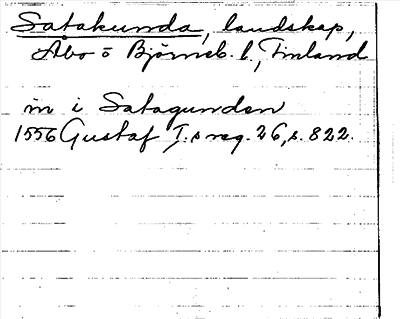 Satakunda, landskap,
Åbo o Björneb. l., Finland
in i Satagunden
1556 Gustaf I.s reg. 26, s. 822.